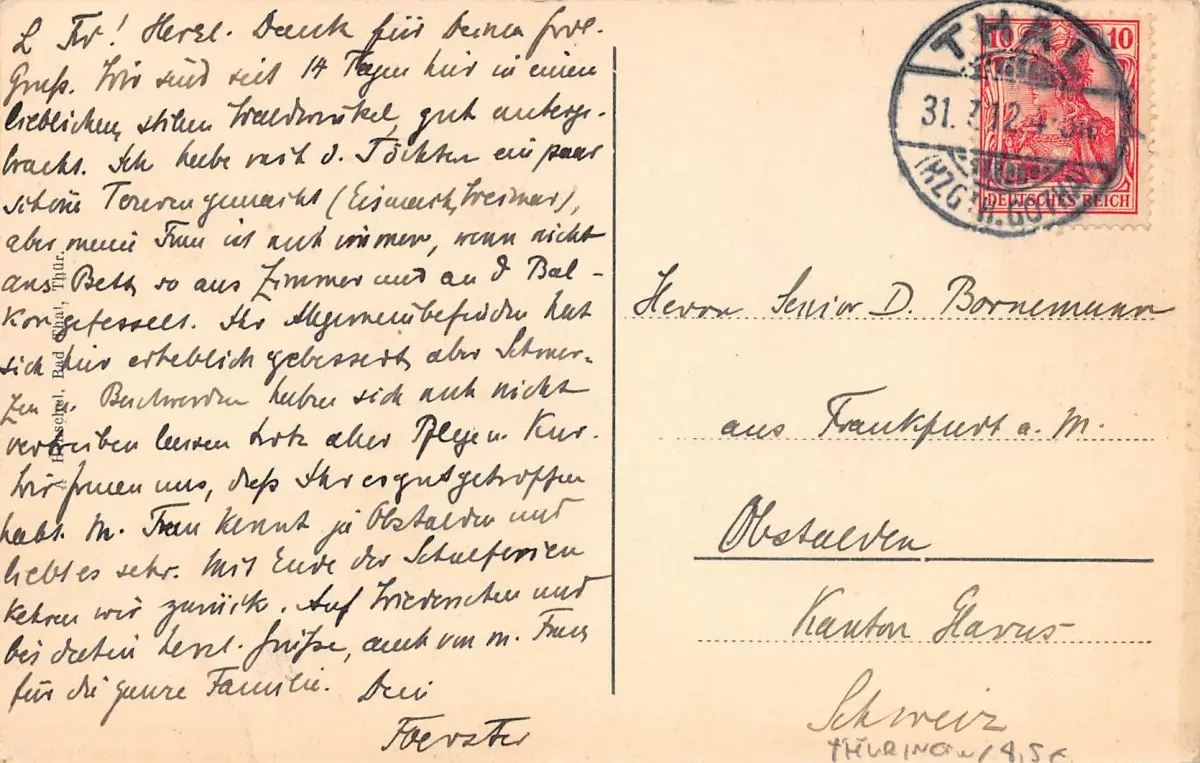 L Fr! Herzl. Dank für Deinen frdl.
Gruß. Wir sind seit 14 Tagen hier in einem
lieblichen, stillen Waldwinkel, gut unterge-
bracht. Ich habe mit d. Töchtern ein paar
schöne Touren gemacht (Eisenach, Weimar),
aber meine Frau ist noch immer, wenn nicht
ans Bett, so ans Zimmer und an d Bal-
kon gefesselt. Ihr Allgemeinbefinden hat
sich hier erheblich gebessert, aber Schmer-
zen u. Beschwerden haben sich noch nicht
vertreiben lassen trotz aller Pflege u. Kur.
Wir freuen uns, daß Ihr es gut getroffen
habt. M. Frau kennt ja Obstalden und
liebt es sehr. Mit Ende der Schulferien
kehren wir zurück. Auf Wiedersehen und
bis dahin herzl. Grüße, auch von m. Frau
für die ganze Familie. Dein
Foerster
Bad Thal, Thür.
THAL
31. 7.12. 4-5N.
(HZGT. GOTHA)
10 10
DEUTSCHES REICH
Herrn Senior D. Bornemann
aus Frankfurt a. M.
Obstalden
Kanton Glarus
Schweiz
THÜRINGEN / 8,5